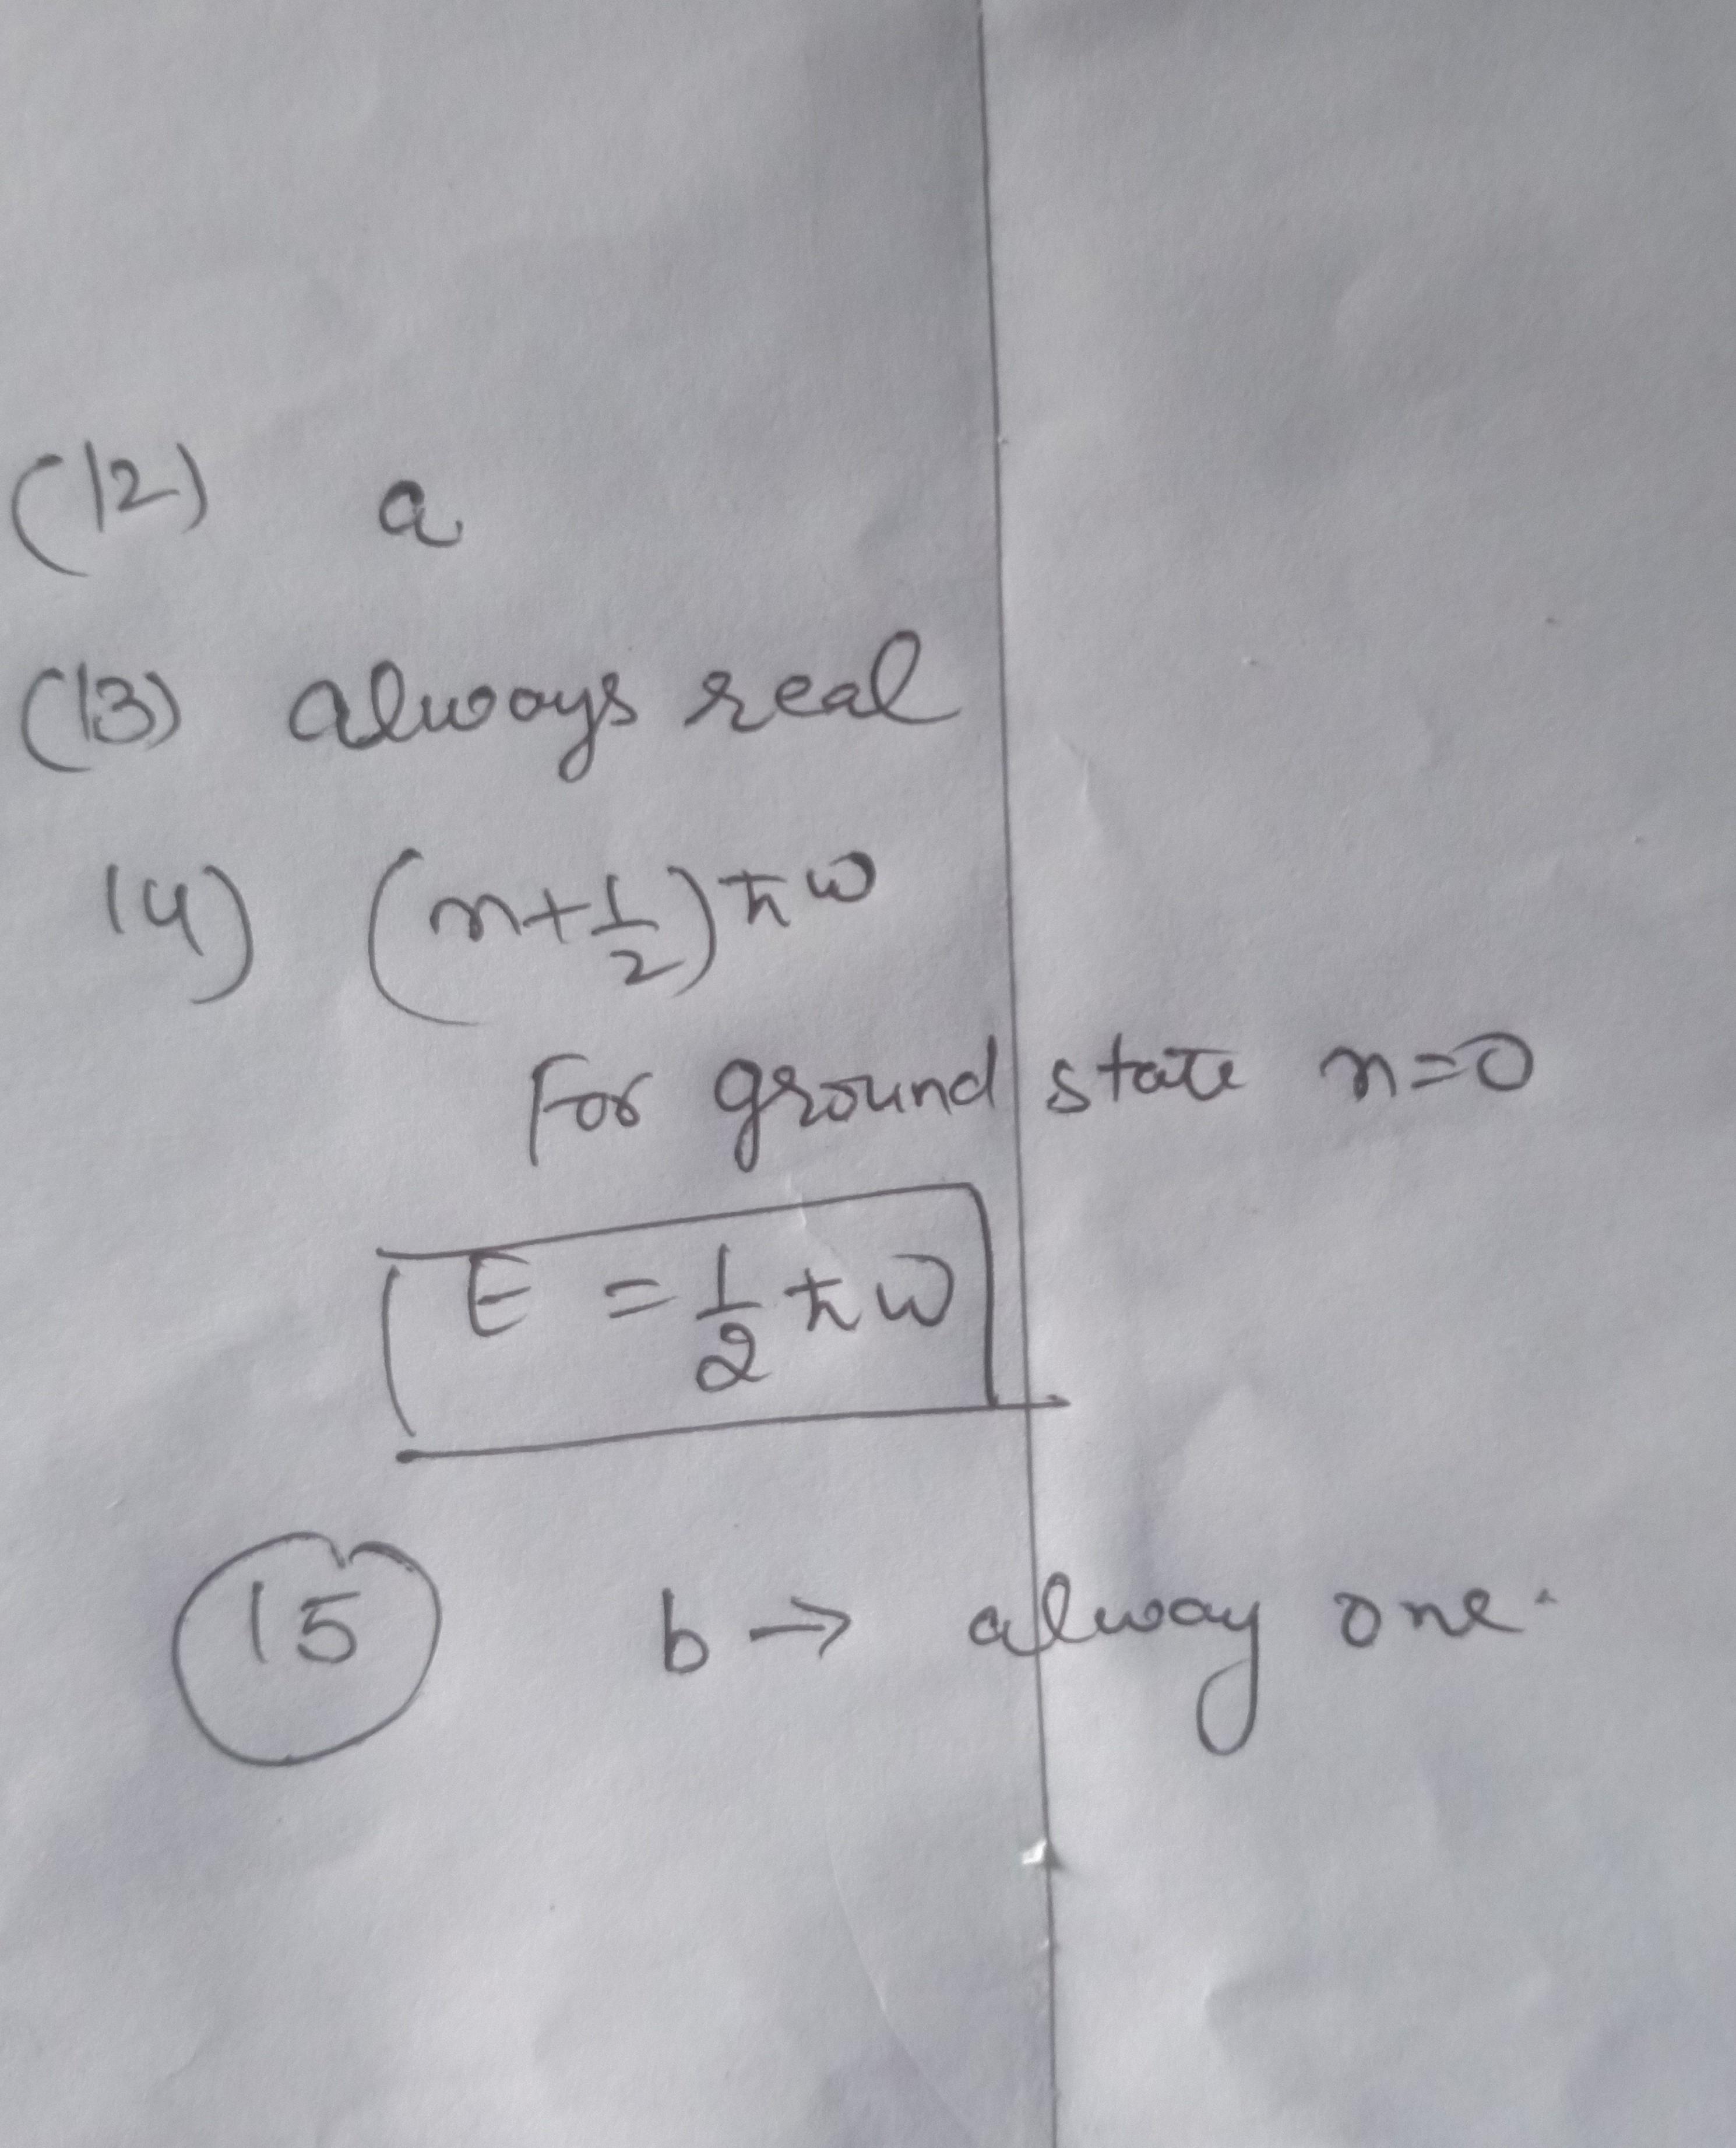 (12) a
(13) always real
14) (n+1/2)ħω
For ground state n=0
E = 1/2 ħω
15 b → alway one.